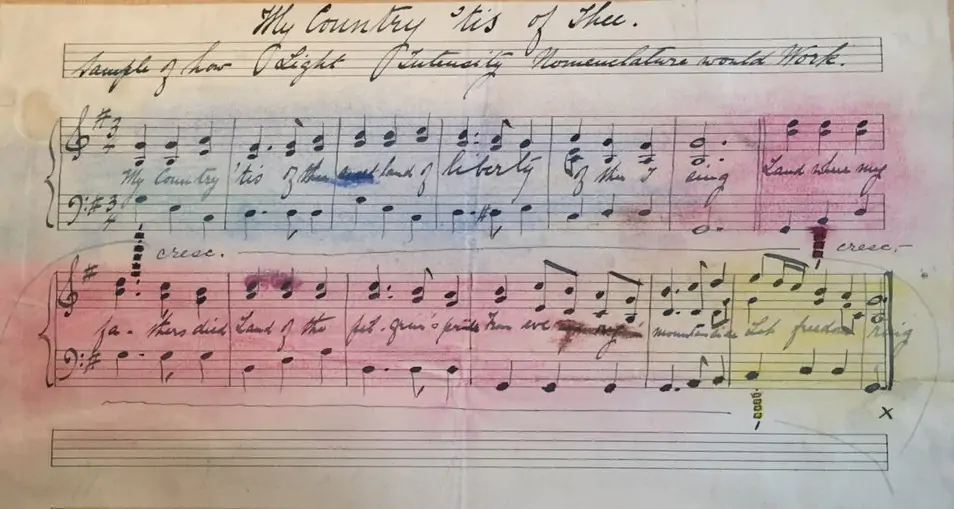 My Country 'tis of Thee.
Sample of how Light Intensity Nomenclature would Work.
3 4
My Country 'tis of thee sweet land of liberty of thee I sing Land where my
3 4
cresc. cresc.
fa - thers died Land of the pil - grim's pride From eve mountain side Let freedom ring
x